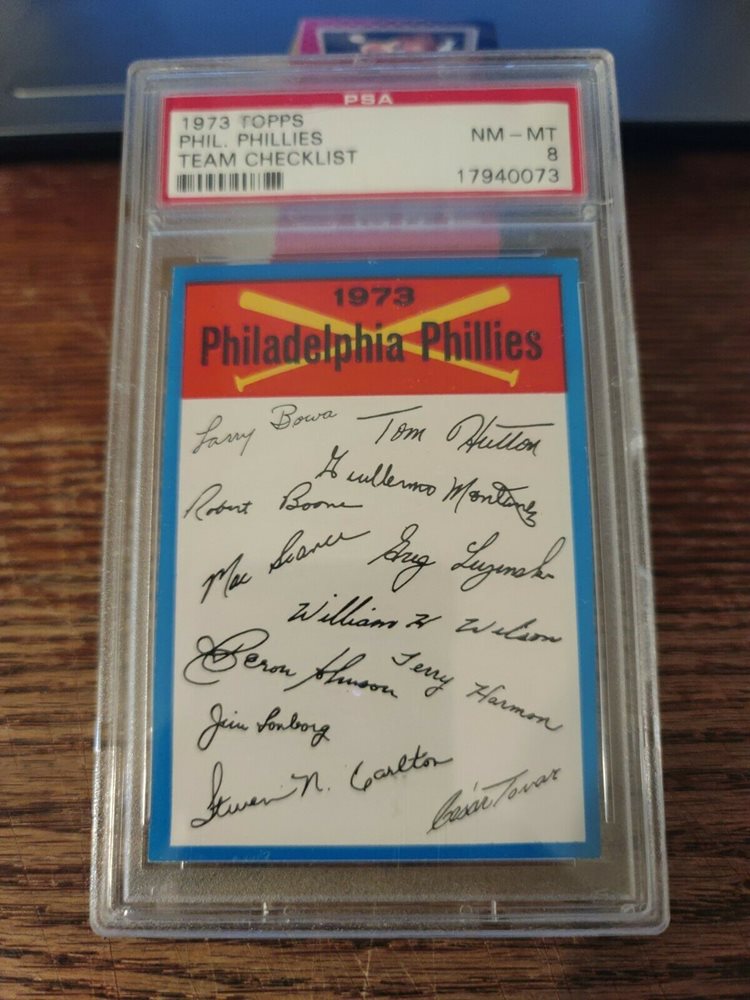 PSA
1973 TOPPS
PHIL. PHILLIES NM-MT
TEAM CHECKLIST 8
17940073
1973
Philadelphia Phillies
Larry Bowa Tom Hutton
Guillermo Montinez
Robert Boone
Mac Scarce Greg Luzinski
William H Wilson
Deron Johnson Terry Harmon
Jim Lonborg
Steven N. Carlton
César Tovar